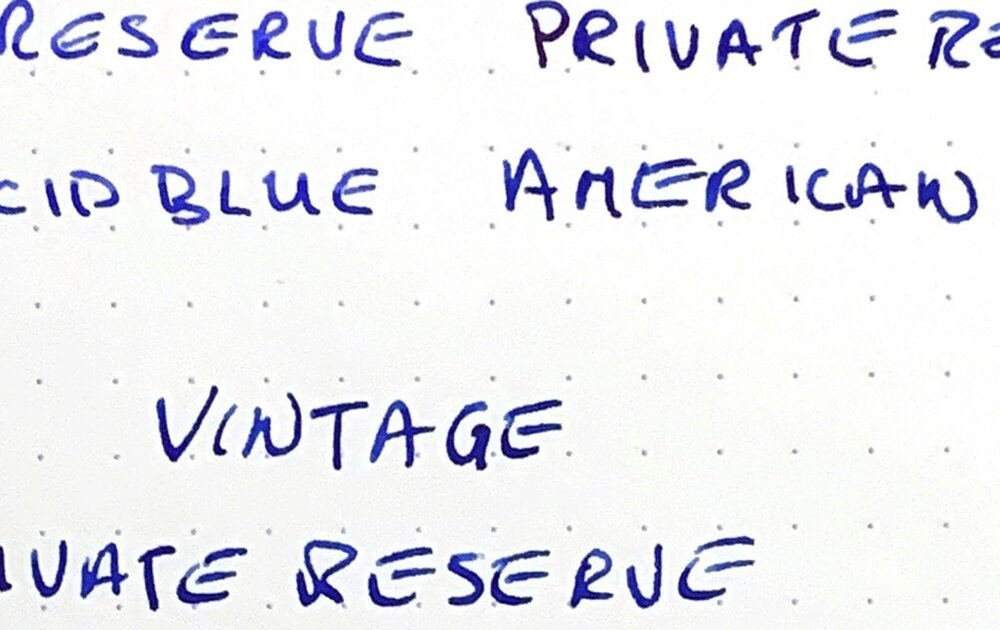 RESERVE PRIVATE RE
CID BLUE AMERICAN
VINTAGE
IVATE RESERVE